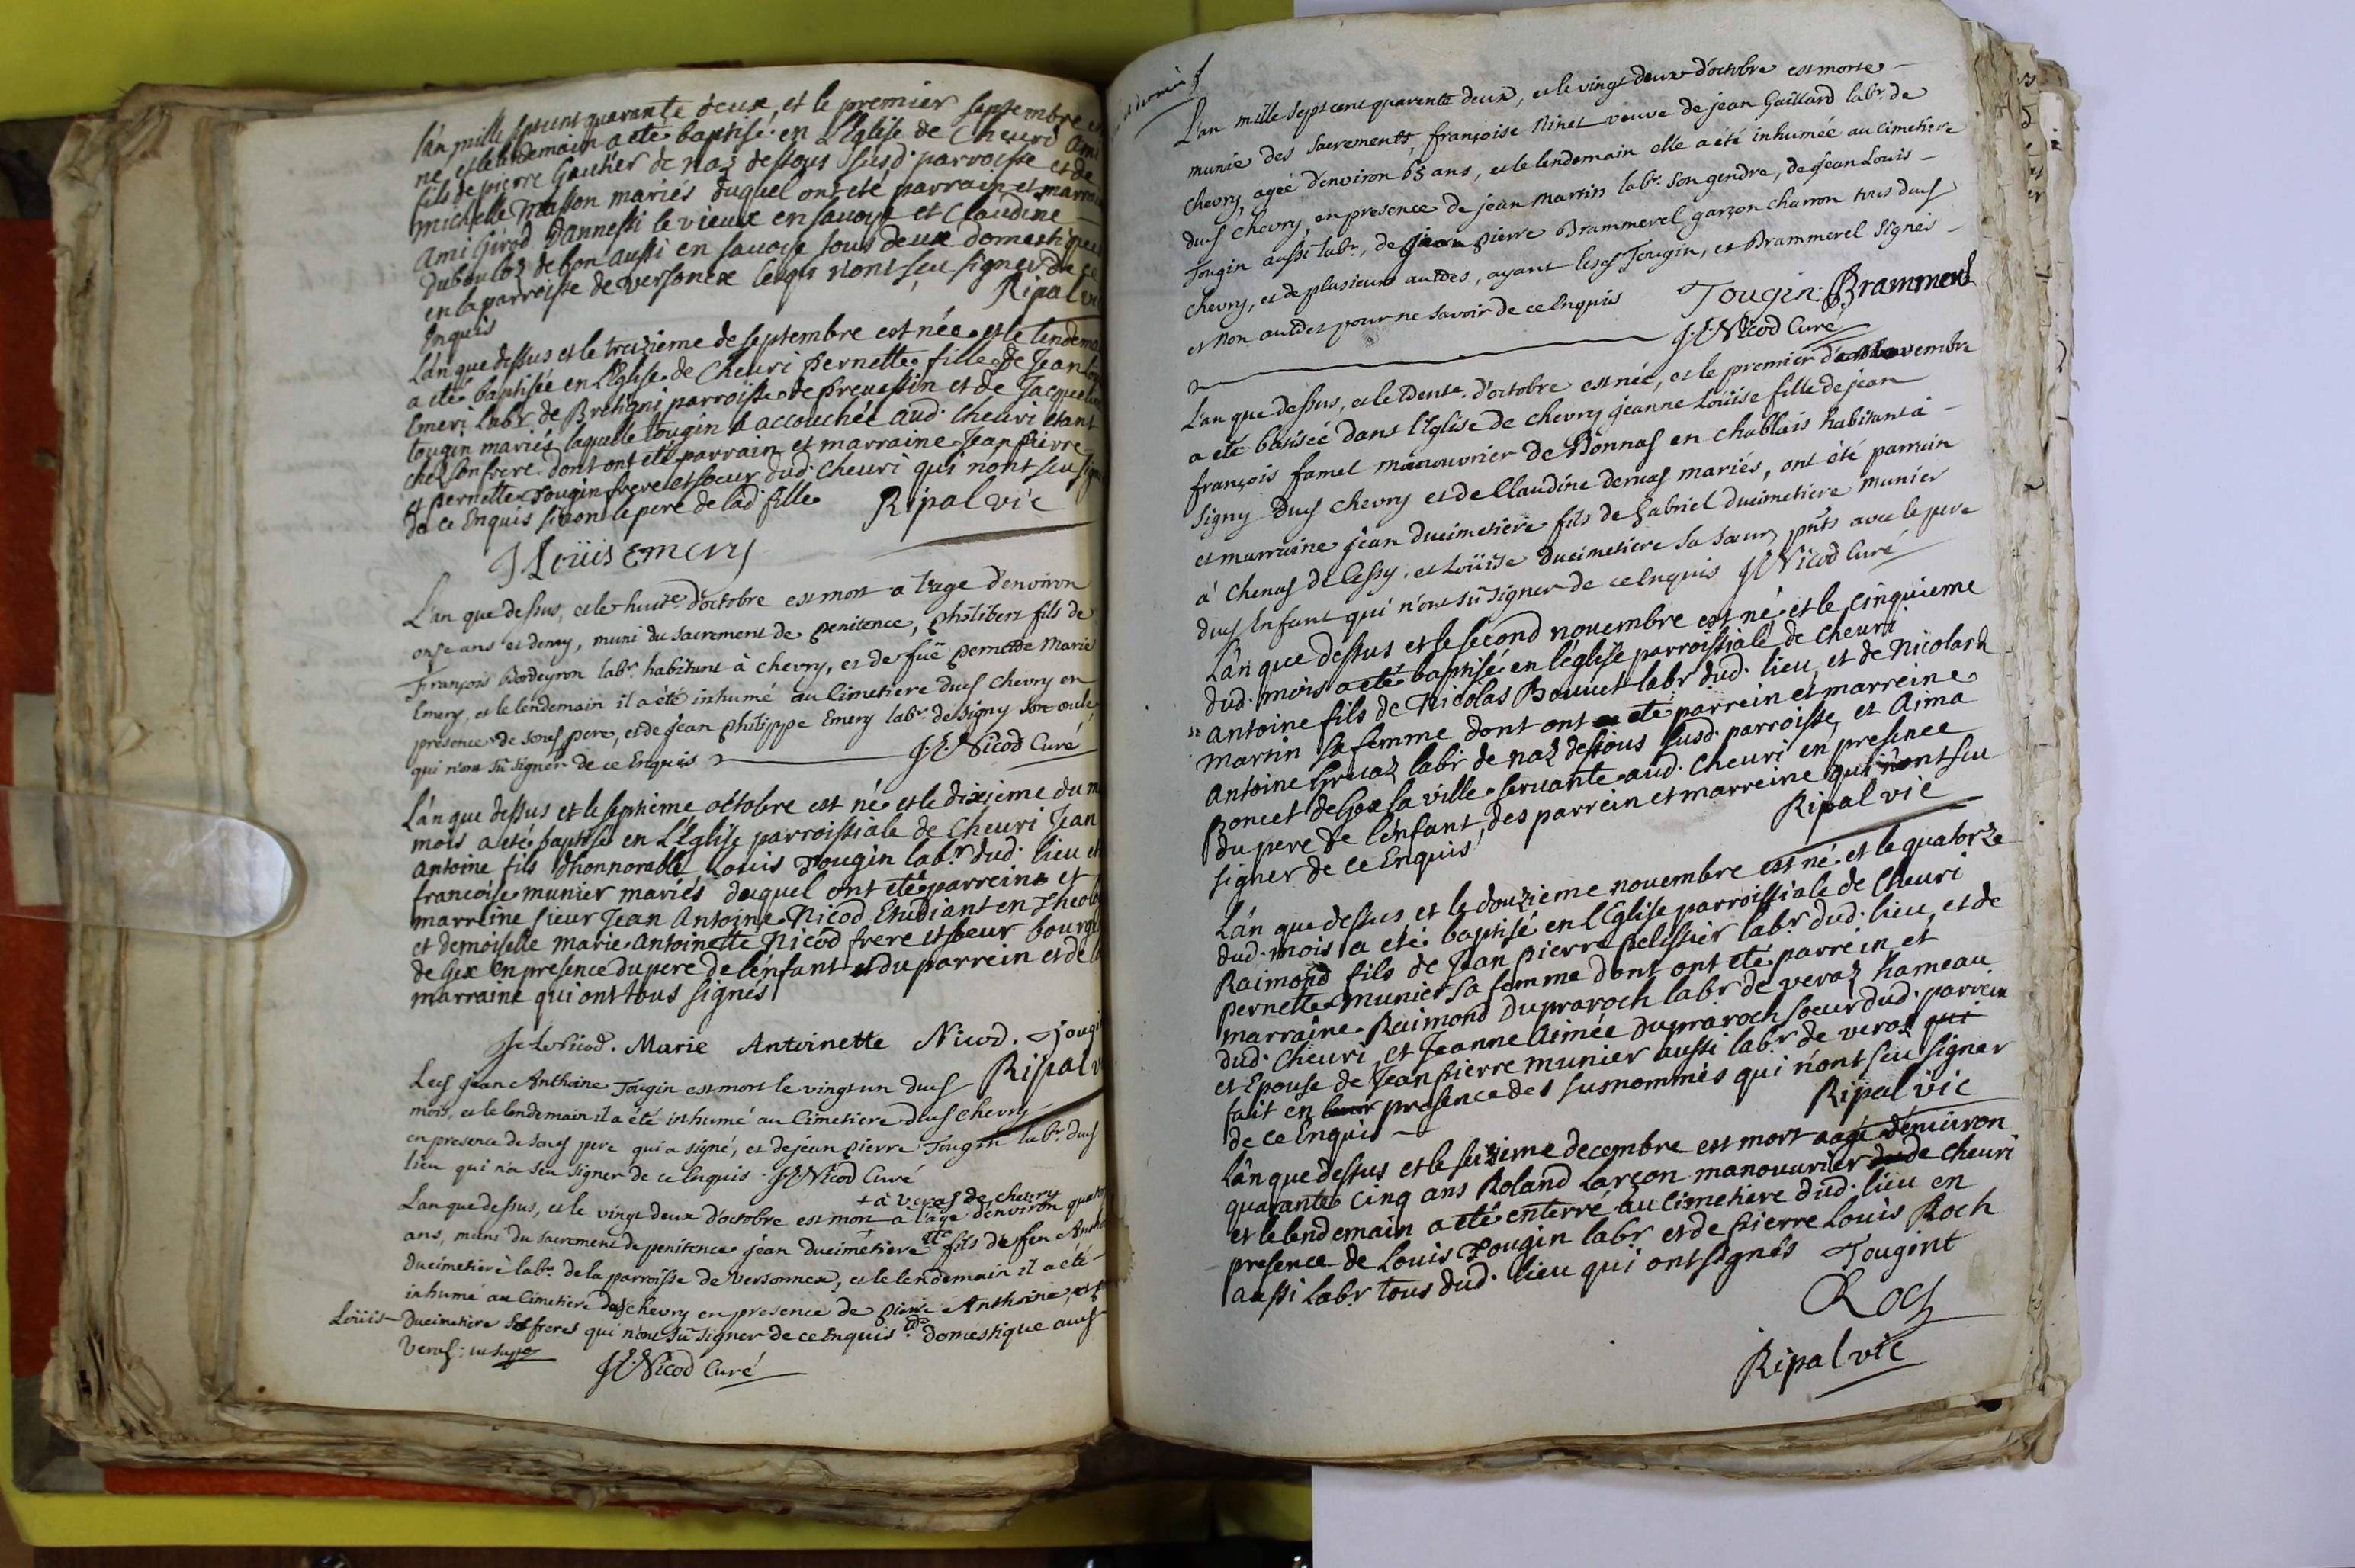 l'an mille sept cent quarante deux, et le premier septembre
né, et le lendemain a eté baptisé en L'Eglise de Cheuri Ami
fils de pierre Gautier de Naz dessous susd. parroisse et de
michelle Masson mariés duquel ont eté parrain et marraine
Ami Girod Dannessi le vieux en savoye et Claudine
Duboulos de bon aussi en sauoye sous deux domestiques
en la parroisse de versonex lesqls n'ont sçu signer de ce
Enquis
Ripal vic
L'an que dessus et le treizieme de septembre est née et le lendemain
a eté baptisée en L'Eglise de Cheuri Pernette fille de Jean Louis
Emeri Labr de Bretigni parroisse de Preuessin et de Jacqueline
tougin mariés laquelle tougin a accouchée aud. Cheuri étant
chez son frere dont ont eté parrain et marraine Jean Pierre
et Pernette Tougin frere et soeur dud. Cheuri qui n'ont sçu signer
de ce Enquis sinon le pere de lad. fille Ripal vic
J Loüis Emery
L'an que dessus, et le huite. d'octobre est mort a l'age d'environ
onse ans et demy, muni du sacrement de penitence, philibert fils de
François Bordeyron labr. habitant à chevry, et de füe pernette Marie
Emery, et le lendemain il a été inhumé au Cimetiere dud chevry en
presence de sond pere, et de jean philippe Emery labr. de signy son oncle
qui n'ont sû signer de ce Enquis J. L. Nicod Curé
L'an que dessus et le septieme octobre est né et le dixieme du m
mois a eté baptisé en L'Eglise parroissiale de Cheuri Jean
Antoine fils d'honnorable Louis Tougin labr. dud. lieu et
francoise munier mariés duquel ont eté parreins et
marreine sieur Jean Antoine Nicod Etudiant en Theolo
et demoiselle marie Antoinette Nicod frere et soeur bourg
de Gex en presence du pere de l'enfant et du parrein et de la
marraine qui ont tous signés
Marie Antoinette Nicod. Tougin
Ripal v
Led jean Anthoine Tougin est mort le vingt un dud
mois, et le lendemain il a été inhumé au Cimetiere dud chevry
en presence de sond pere qui a signé, et de jean pierre Tougin labr. dud
lieu qui n'a seu signer de ce Enquis. J. L. Nicod Curé
+ à veras de chevry
L'an que dessus, et le vingt deux d'octobre est mort a l'age d'environ quator
ans, muni du sacrement de penitence jean ducimetiere fils de feu Antho
ducimetiere labr. de la parroisse de versonnex, et le lendemain il a été
inhumé au Cimetiere dud chevry en presence de pierre Anthoine, et
Loüis Ducimetiere ses freres qui n'ont sû signer de ce Enquis domestique aud
Veras:
J. L. Nicod Curé
L'an mille sept cent quarente deux, et le vingt deux d'octobre est morte
munie des sacrements, françoise Ninet veuve de jean Gaillard labr. de
chevry, ageé d'environ 65 ans, et le lendemain elle a été inhumée au Cimetiere
dud chevry, en presence de jean Martin labr. son gendre, de jean Louis
Tougin aussi labr., de pierre Brammerel garzon charron tous dud
chevry, et de plusieurs autres, ayant lesd Tougin, et Brammerel signés
et non autres pour ne savoir de ce Enquis Tougin Brammerel
J. L. Nicod Curé
L'an que dessus, et le trente d'octobre est née, et le premier novembre
a eté batiseé dans l'Eglise de chevry jeanne Loüise fille de jean
françois famel manouvrier de Nonnas en Chablais habitant à
signy dud chevry et de Claudine dervas mariés, ont été parrain
et marraine jean ducimetiere fils de Gabriel ducimetiere munier
à Chenas de Cessy, et Loüise ducimetiere sa soeur pnts avec le pere
dud Enfant qui n'ont sû signer de ce Enquis J. L. Nicod Curé
L'an que dessus et le second nouembre est né et le cinquieme
dud. mois a eté baptisé en l'église parroissiale de Cheuri
Antoine fils de Nicolas Bouuet labr dud. lieu et de Nicolarde
Martin sa femme dont ont eté parrein et marreine
Antoine Gruaz labr de naz dessous susd. parroisse, et Aima
Poncet de Gex la ville servante aud. Cheuri en presence
du pere de l'enfant, des parrein et marreine qui n'ont seu
signer de ce Enquis Ripal vic
L'an que dessus et le douzieme nouembre est né et le quatorze
dud. mois a eté baptisé en L'Eglise parroissiale de Cheuri
Raimond fils de Jean Pierre Pelissier labr dud. lieu, et de
Pernette Munier sa femme dont ont eté parrein et
marraine Raimond Dupraroch labr de veraz hameau
dud. Cheuri, et Jeanne Aimée Dupraroch soeur dud. parrein
et Epouse de Jean Pierre munier aussi labr de veraz qui
fait en leur presence des susnommés qui n'ont seu signer
de ce Enquis Ripal vic
L'an que dessus et le seizieme decembre est mort aagé d'enuiron
quarante cinq ans Roland Larçon manouurier de Cheuri
et le lendemain a eté enterré au Cimetiere dud. lieu en
presence de Louis Tougin labr et de Pierre Louis Roch
aussi labr tous dud. lieu qui ont signés Tougint
Roch
Ripal vic